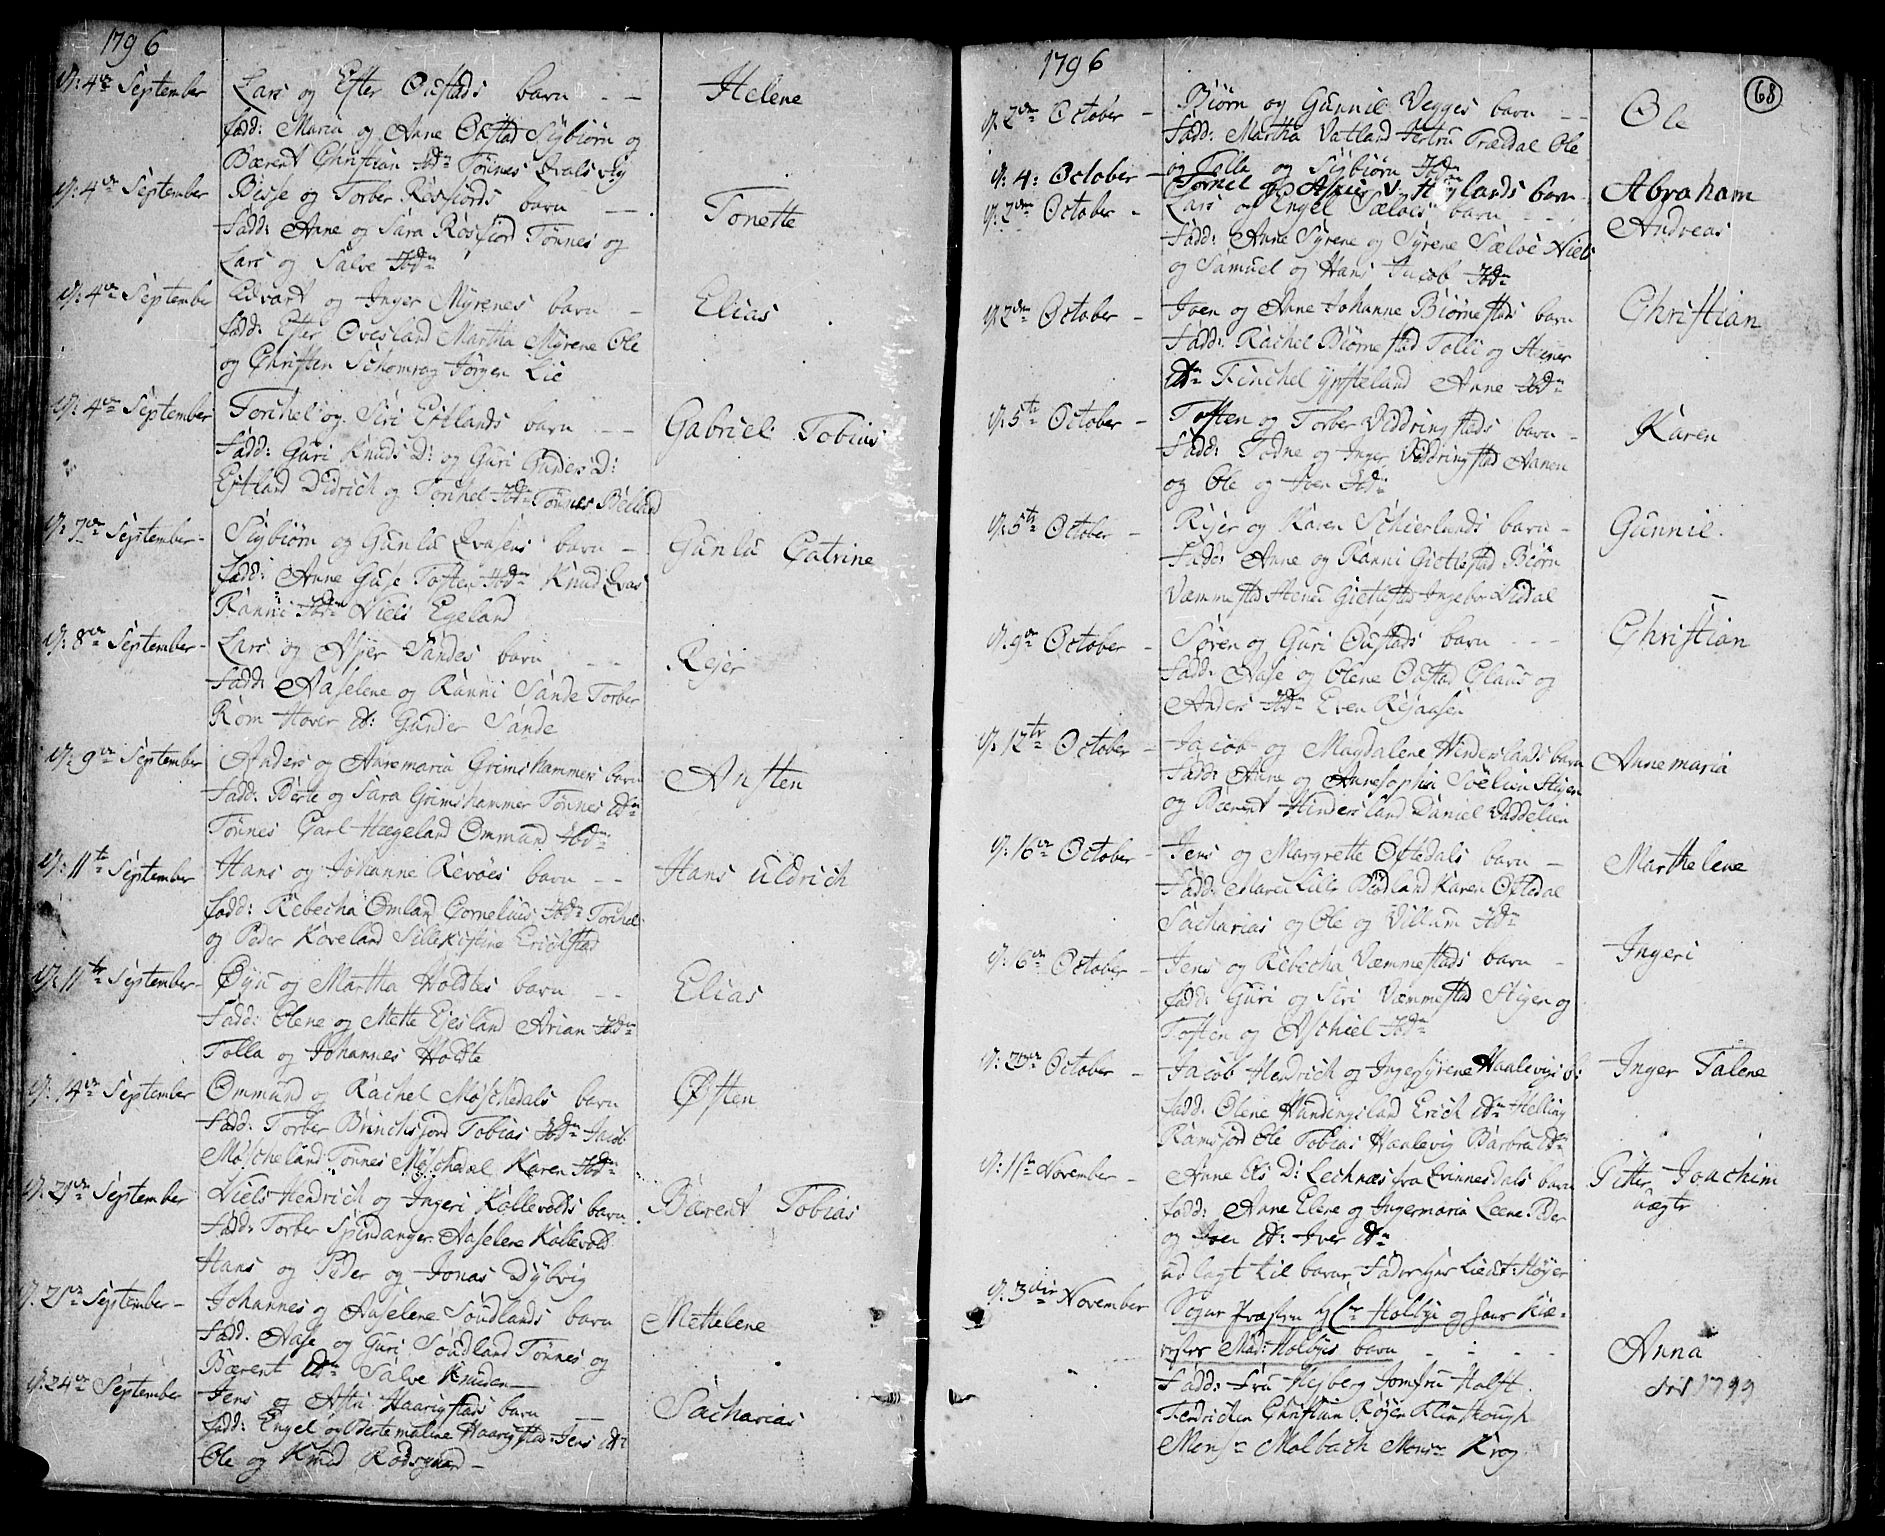 1796
d: 4de September Lars og Ester Oustads barn - - Helene
fadd: Maria og Anne Oustad Sÿbiørn og
Bærent Christian Ibdm Tønnes Qvalsvig
d: 4de September Besse og Torber Røsfiords barn - - Tonette
fadd: Anne og Sara Røsfiord Tønnes og
Lars og Salve Ibdm
d: 4de September Edvart og Inger Mÿrenes barn - Elias
fadd: Ester Ovesland Martha Mÿrene Ole
og Christen Schomrag Jørgen Lie
d: 4de September Torchel og Siri Eitlands barn - - Gabriel Tobias
fadd: Guri Knuds D: og Guri Gunders D:
Eitland Didrich og Torchel Ibdm Tønnes
d: 7de September - Sÿbiørn og Gunla Qvasens barn - Gunla Catrine
fadd: Anne Tosten Ibdm Knud Qvas
Ranni Ibdm Niels Egeland
d: 8de September - Lars og Asier Sandes barn - - Rejer
fadd: Aaselene og Ranni Sande Torber
Rom Hover d: Gunder Sande
d: 9de September Anders og Annemaria Grimshammers barn Ansten
fadd: Berte og Sara Grimshammer Tønnes dm
Tønnes Carl Hægeland Ommund Ibdm
d: 11te September Hans og Johanne Revøes barn - - Hans Uldrich
fadd: Rebecha Omland Cornelius Ibdm Torchel
og Peder Koveland Sillekistine Erichstad
d: 11te September - Øÿu og Martha Holdtes barn - - Elias
fadd: Olene og Mette Eiesland Arian Ibdm
Tolla og Johannes Hodte
d: 14de September Ommund og Rachel Møschedals barn Østen
fadd: Torber Brinchsfiord Tobias Ibdm Jacob
Møscheland Tønnes Møschdal Karen Ibdm
d: 21de September Niels Hendrich og Ingeri Kollevolds barn Bærent Tobias
fadd: Torber Spindanger Aaselene Kollevold
Hans og Peder og Jonas Dÿbvig
d: 21de September - Johannes og Aaselene Soudlands barn Mettelene
fadd: Aase og Guri Soudland Tønnes og
Bærent dm Salve Knuden
d: 24de September Jens og Astri Haarigstads barn - Sacharias
fadd: Engel og Bertemaline Haarigstad Jens dm
Ole og Knud Rodsguard -
1796
68
d: 2den October - Biørn og Gunnil Vegges barn - - Ole
fadd: Martha Vatland Trædal Ole
og Tolla og Sÿbiørn Ibdm
d: 4: October - Tørnel og v: Høÿlands barn Abraham
d: 2den October - Lars og Engel Sæløes barn - - Andreas
fadd: Anne Sÿrene og Sÿrene Sæløe Niels
og Samuel og Hans Jacob Ibdm
d: 2den October - Joen og Anne Johanne Biørnestads barn Christian
fadd: Rachel Biørnestad Tolli og Stener
dm Tinchel Anne Ibdm
d: 5te October - Tosten og Torber Viddringstads barn - Karen
fadd: Todne og Inger Viddringstad Aanen
og Ole og Joen Ibdm
d: 5te October - Rejer og Karen Schierlands barn - Gunnil.
fadd: Anne og Ranni Gietestad Biørn
Væmmestad Stener Gietestad Ingebor Lisdal
d: 9de October - Søren og Guri Oustads barn - - - Christian
fadd: Aase og Olene Oustad Claus og
Anders Ibdm Even Rejaasen
d: 12te October - Jacob og Magdalene Hinderslands barn Annemaria
fadd: Anne og Annesophia Soelien Stejen
og Bærent Hindersland Daniel Vaddelien
d: 16de October - Jens og Margrette Oftedals barn - Marthelene
fadd: Karen Oftedal
Sacharias og Ole og Villum Ibdm
d: 16de October - Jens og Rebecha Væmmestads barn - Ingeri
fadd: Guri og Siri Væmmestad Stejen og
Tosten og Aschiel Ibdm
October - Jacob Hendrich og Ingersÿrene Haalevigs b: Inger Talene
fadd: Olene Hundingsland Erich dm Helling
Ramsfiord Ole Tobias Haalevig Barbra dm
November - Anne Els D: Lechnæs fra Qvinnesdals barn Pitter Joachim
uægte
fadd: Anne Elene og Ingermaria Leene Peder
og Joen d: Iver dm
udlagt til barne Fader hr Lieut Høÿer
d: 3die November Sogne Præsten Hr Holbye og hans Kiæ-
restes Mad: Holbÿes barn - - - Anna
død 1799
fadd: Fru Hejberg Jomfru Holst
Fendrichen Christian Røÿer
Monsr Molbach Monsr Krog